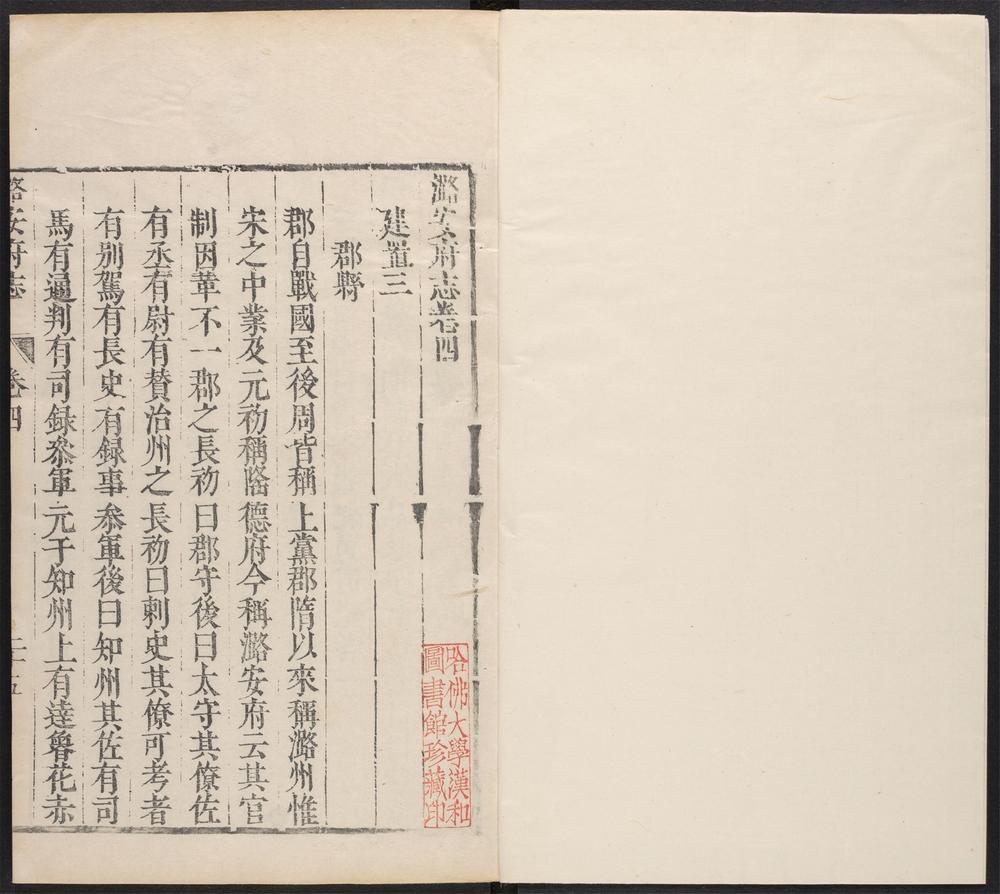 潞安府志卷四
建置三
郡縣
郡自戰國至後周皆稱上黨郡隋以來稱潞州惟
宋之中業及元初稱隆德府今稱潞安府云其官
制因革不一郡之長初曰郡守後曰太守其僚佐
有丞有尉有贊治州之長初曰刺史其僚可考者
有別駕有長史有録事叅軍後曰知州其佐有司
馬有通判有司録叅軍元于知州上有達魯花赤
潞安府志 卷四
哈佛大學漢和
圖書館珍藏印